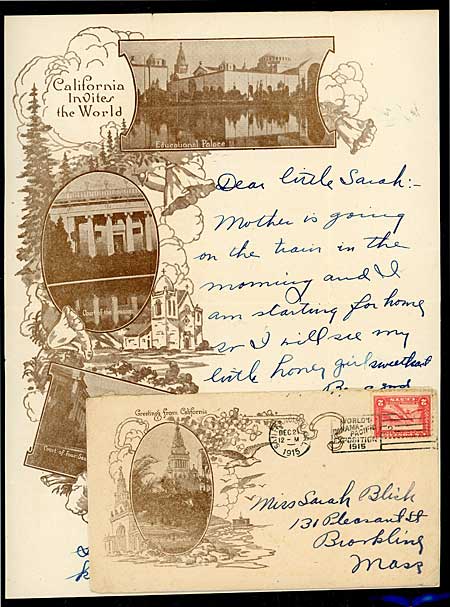 California
Invites
the World
Educational Palace
Dear little Sarah:-
Mother is going
on the train in the
morning and I
am starting for home
so I will see my
little honey girl sweetheart
Court of the
Court of Four Sea
Greetings from California
DEC 2
12-M
1915
WORLD'S
PANAMA-PACIFIC
EXPOSITION
1915
2
Miss Sarah Blish
131 Pleasant St
Brookline
Mass